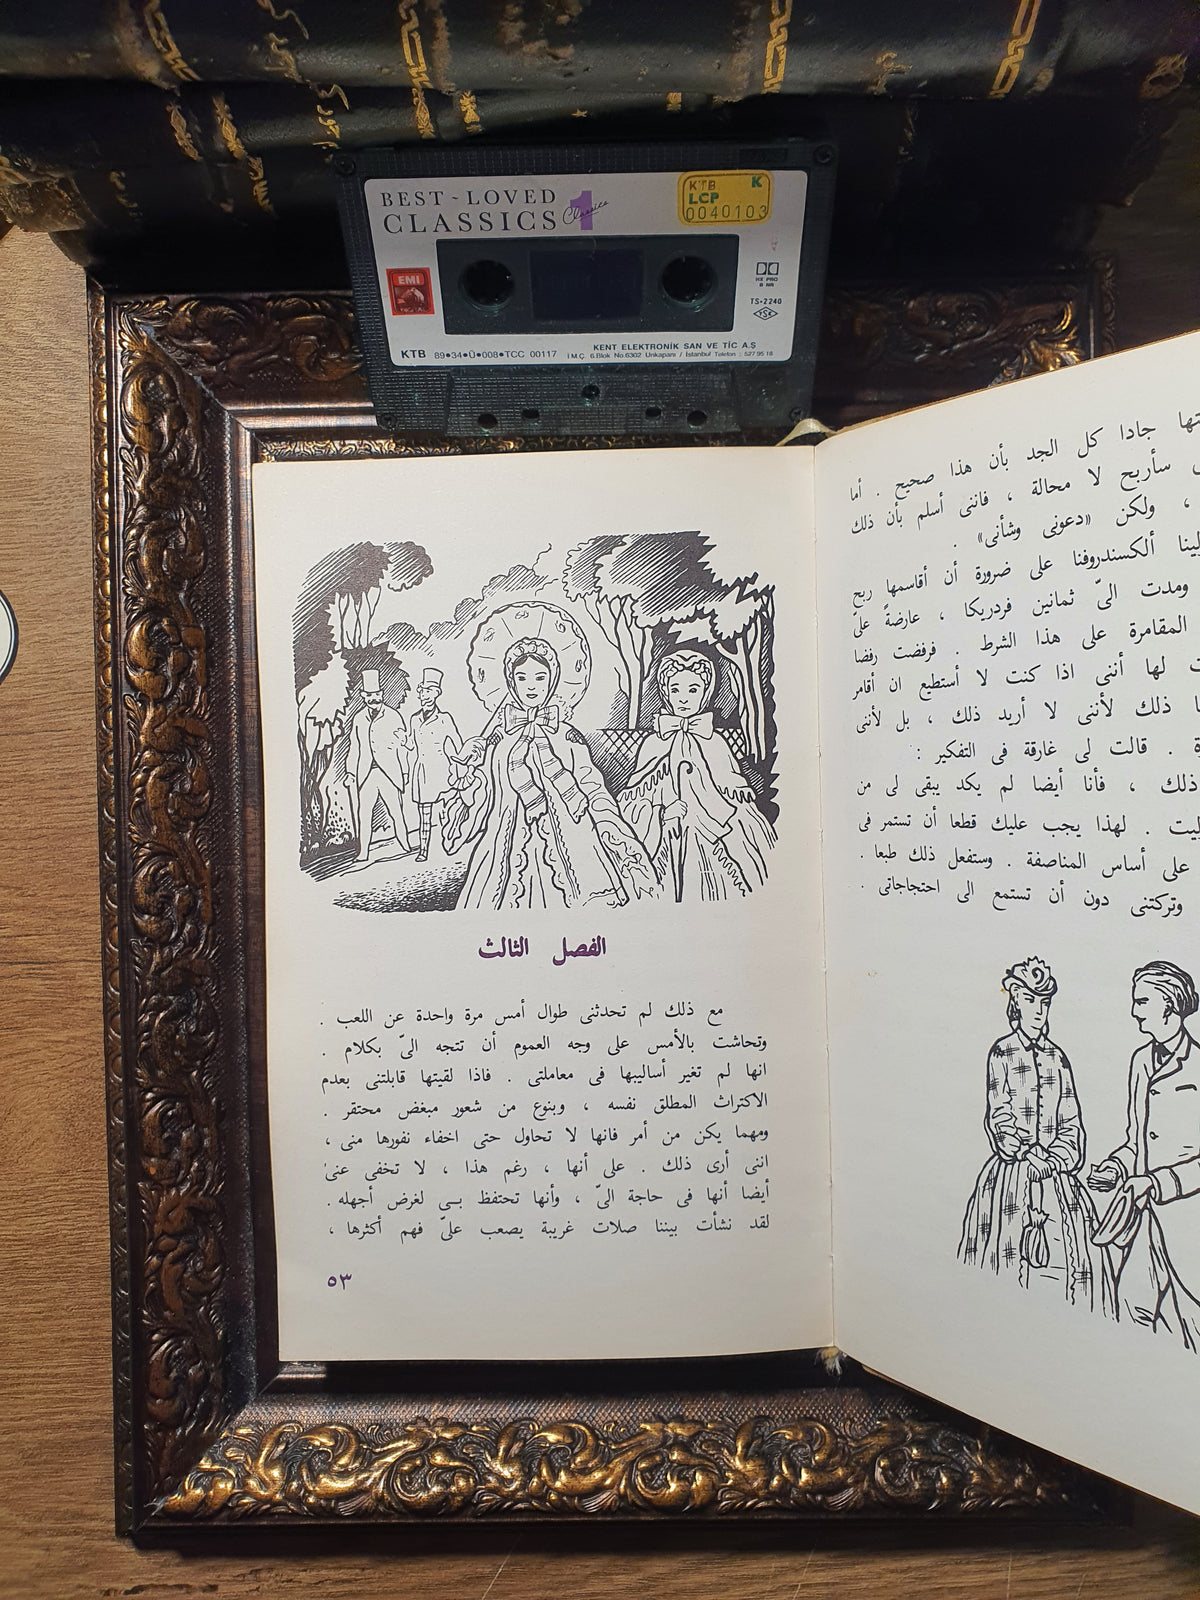 BEST ~ LOVED
CLASSICS 1
Classics
KTB K
LCP
0040103
EMI
DIGITAL
HX PRO
B NR
TS-2240
TSE
KENT ELEKTRONİK SAN VE TİC A.Ş
KTB 89•34•Ü•008•TCC 00117 İ.M.Ç. 6.Blok No.6302 Unkapanı / İstanbul Telefon : 527 95 18
جادا كل الجد بأن هذا صحيح . أما
سأربح لا محالة ، فاننى أسلم بأن ذلك
، ولكن «دعونى وشأنى» .
ألكسندروفنا على ضرورة أن أقاسمها ربح
ومدت الىّ ثمانين فردريكا ، عارضةً علىّ
المقامرة على هذا الشرط . فرفضت رفضا
لها أننى اذا كنت لا أستطيع ان أقامر
ذلك لأننى لا أريد ذلك ، بل لأننى
. قالت لى غارقة فى التفكير :
ذلك ، فأنا أيضا لم يكد يبقى لى من
. لهذا يجب عليك قطعا أن تستمر فى
على أساس المناصفة . وستفعل ذلك طبعا .
وتركتنى دون أن تستمع الى احتجاجاتى .
الفصل الثالث
مع ذلك لم تحدثنى طوال أمس مرة واحدة عن اللعب .
وتحاشت بالأمس على وجه العموم أن تتجه الىّ بكلام .
انها لم تغير أساليبها فى معاملتى . فاذا لقيتها قابلتنى بعدم
الاكتراث المطلق نفسه ، وبنوع من شعور مبغض محتقر .
ومهما يكن من أمر فانها لا تحاول حتى اخفاء نفورها منى ،
اننى أرى ذلك . على أنها ، رغم هذا ، لا تخفى عنى
أيضا أنها فى حاجة الىّ ، وأنها تحتفظ بـى لغرض أجهله .
لقد نشأت بيننا صلات غريبة يصعب علىّ فهم أكثرها ،
٥٣